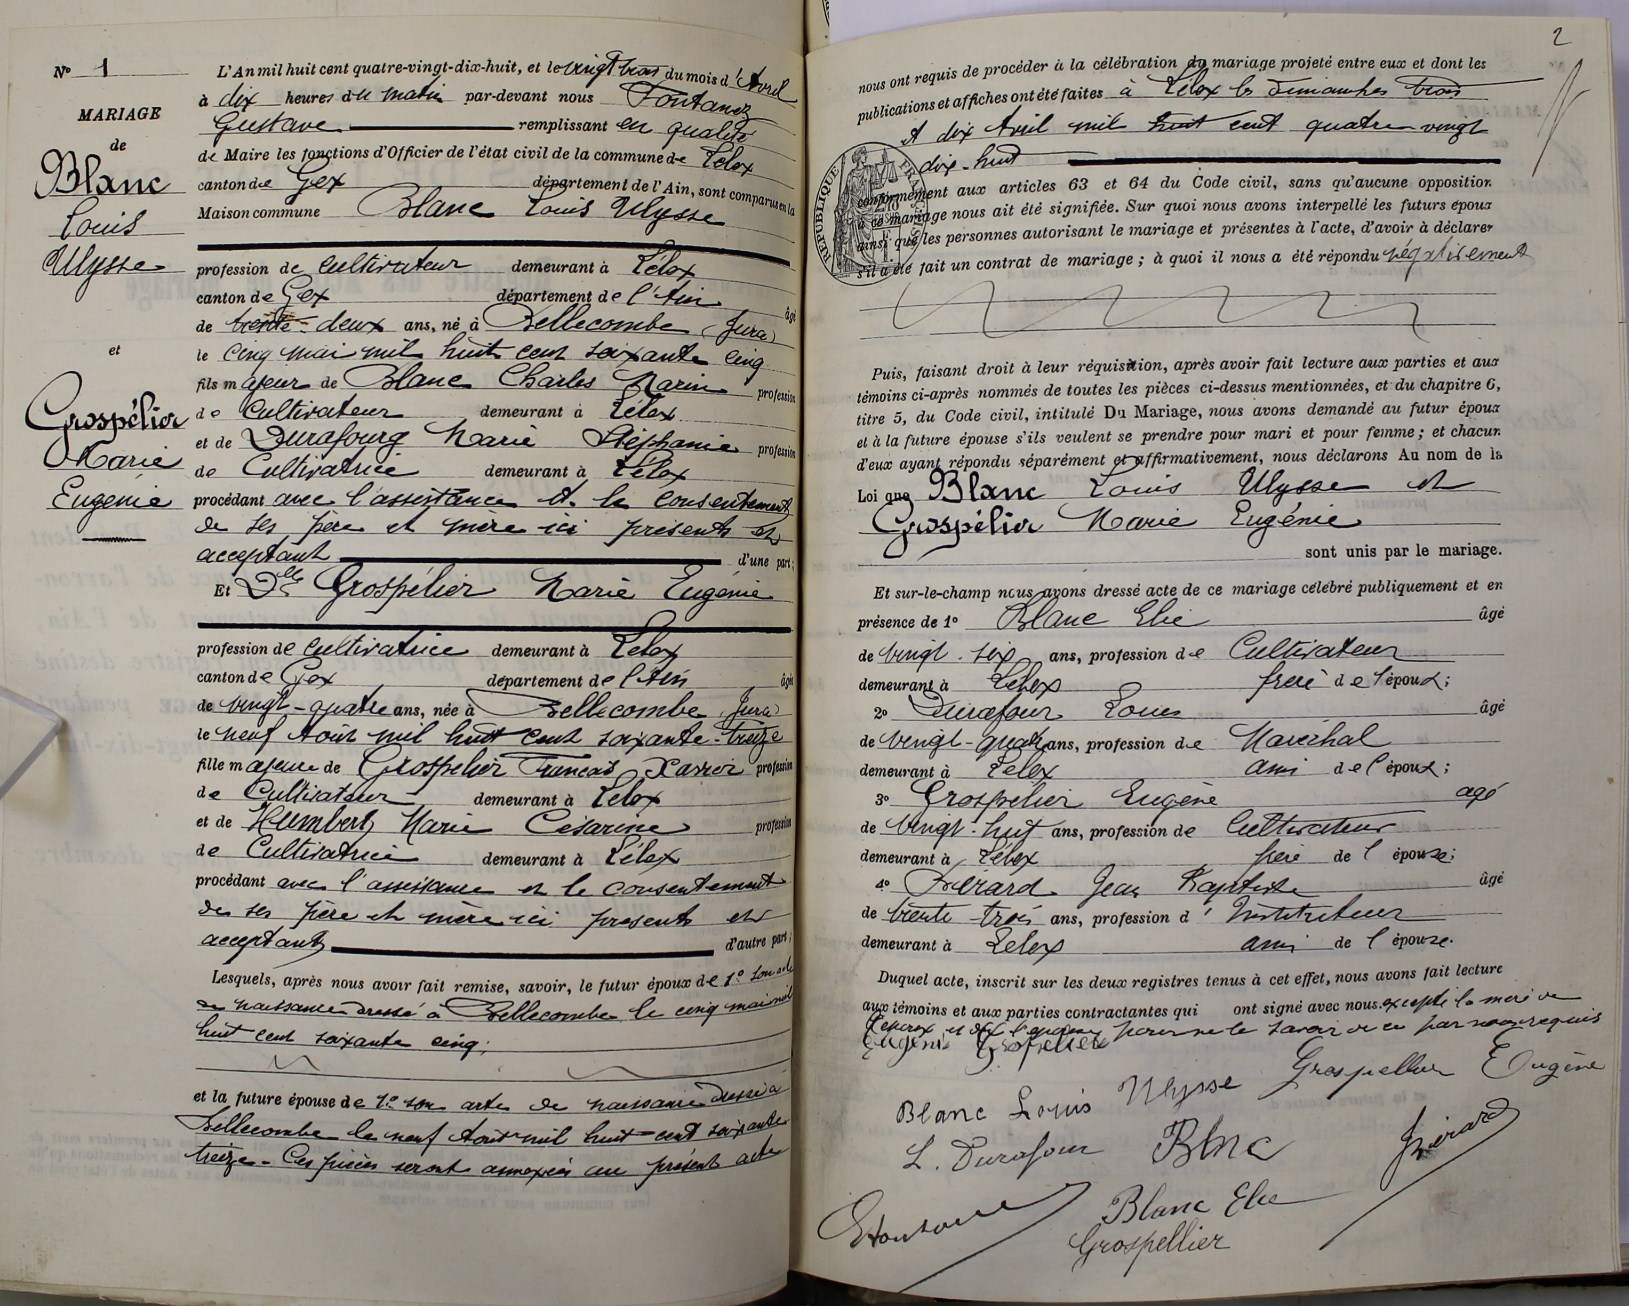 N° 1
MARIAGE
de
Blanc
Louis
Ulysse
et
Grospélier
Marie
Eugénie
L'An mil huit cent quatre-vingt-dix-huit, et le vingt trois du mois d'Avril
à dix heures du matin par-devant nous Fontanez
Gustave remplissant en qualité
de Maire les fonctions d'Officier de l'état civil de la commune de Lélex
canton de Gex département de l'Ain, sont comparus en la
Maison commune Blanc Louis Ulysse
profession de cultivateur demeurant à Lélex
canton de Gex département de l'Ain âgé
de trente-deux ans, né à Bellecombe (Jura)
le cinq mai mil huit cent soixante cinq
fils majeur de Blanc Charles Marin profession
de Cultivateur demeurant à Lélex
et de Durafourg Marie Stéphanie profession
de Cultivatrice demeurant à Lélex
procédant avec l'assistance et le consentement
de ses père et mère ici présents et
acceptant d'une part;
Et Dlle Grospélier Marie Eugénie
profession de cultivatrice demeurant à Lélex
canton de Gex département de l'Ain âgée
de vingt-quatre ans, née à Bellecombe (Jura)
le neuf Août mil huit cent soixante-treize
fille majeure de Grospélier Francois Xavier profession
de Cultivateur demeurant à Lélex
et de Humbert Marie Césarine profession
de Cultivatrice demeurant à Lélex
procédant avec l'assistance et le consentement
de ses père et mère ici présents et
acceptants d'autre part;
Lesquels, après nous avoir fait remise, savoir, le futur époux de 1° son acte
de naissance dressé à Bellecombe le cinq mai mil
huit cent soixante cinq;
et la future épouse de 1° son acte de naissance dressé à
Bellecombe le neuf Août mil huit cent soixante
treize - Ces pièces seront annexées au présent acte
2
nous ont requis de procéder à la célébration du mariage projeté entre eux et dont les
publications et affiches ont été faites à Lélex les Dimanches trois
et dix Avril mil huit cent quatre vingt
dix-huit
conformément aux articles 63 et 64 du Code civil, sans qu'aucune opposition
à ce mariage nous ait été signifiée. Sur quoi nous avons interpellé les futurs époux
ainsi que les personnes autorisant le mariage et présentes à l'acte, d'avoir à déclarer
s'il a été fait un contrat de mariage; à quoi il nous a été répondu négativement
RÉPUBLIQUE FRANÇAISE
Puis, faisant droit à leur réquisition, après avoir fait lecture aux parties et aux
témoins ci-après nommés de toutes les pièces ci-dessus mentionnées, et du chapitre 6,
titre 5, du Code civil, intitulé Du Mariage, nous avons demandé au futur époux
et à la future épouse s'ils veulent se prendre pour mari et pour femme; et chacun
d'eux ayant répondu séparément et affirmativement, nous déclarons Au nom de la
Loi que Blanc Louis Ulysse et
Grospélier Marie Eugénie
sont unis par le mariage.
Et sur-le-champ nous avons dressé acte de ce mariage célébré publiquement et en
présence de 1° Blanc Elie âgé
de vingt-six ans, profession de Cultivateur
demeurant à Lélex frère de l'époux;
2° Durafour Louis âgé
de vingt-quatre ans, profession de Maréchal
demeurant à Lélex ami de l'époux;
3° Grospélier Eugène agé
de vingt-huit ans, profession de Cultivateur
demeurant à Lélex frère de l'épouse;
4° Girard Jean Baptiste âgé
de trente-trois ans, profession d'Instituteur
demeurant à Lélex ami de l'épouse.
Duquel acte, inscrit sur les deux registres tenus à cet effet, nous avons fait lecture
aux témoins et aux parties contractantes qui ont signé avec nous excepté la mère de
l'époux et de l'épouse pour ne le savoir de ce par nous requis
Eugénie Grospellier
Blanc Louis Ulysse Grospellier Eugène
L. Durafour Blnc
Blanc Elie
Grospellier